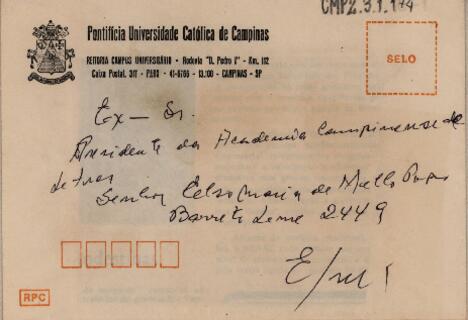 CMP2.3.1.174
Pontifícia Universidade Católica de Campinas
REITORIA CAMPUS UNIVERSITÁRIO - Rodovia "D. Pedro I" - Km. 112
Caixa Postal, 317 - PABX - 41-6766 - 13.100 - CAMPINAS - SP
SELO
Ex - Sr.
Presidente da Academia Campinense de
Letras
Senhor Celso Maria de Mello Pupo
Barreto Leme 2449
RPC